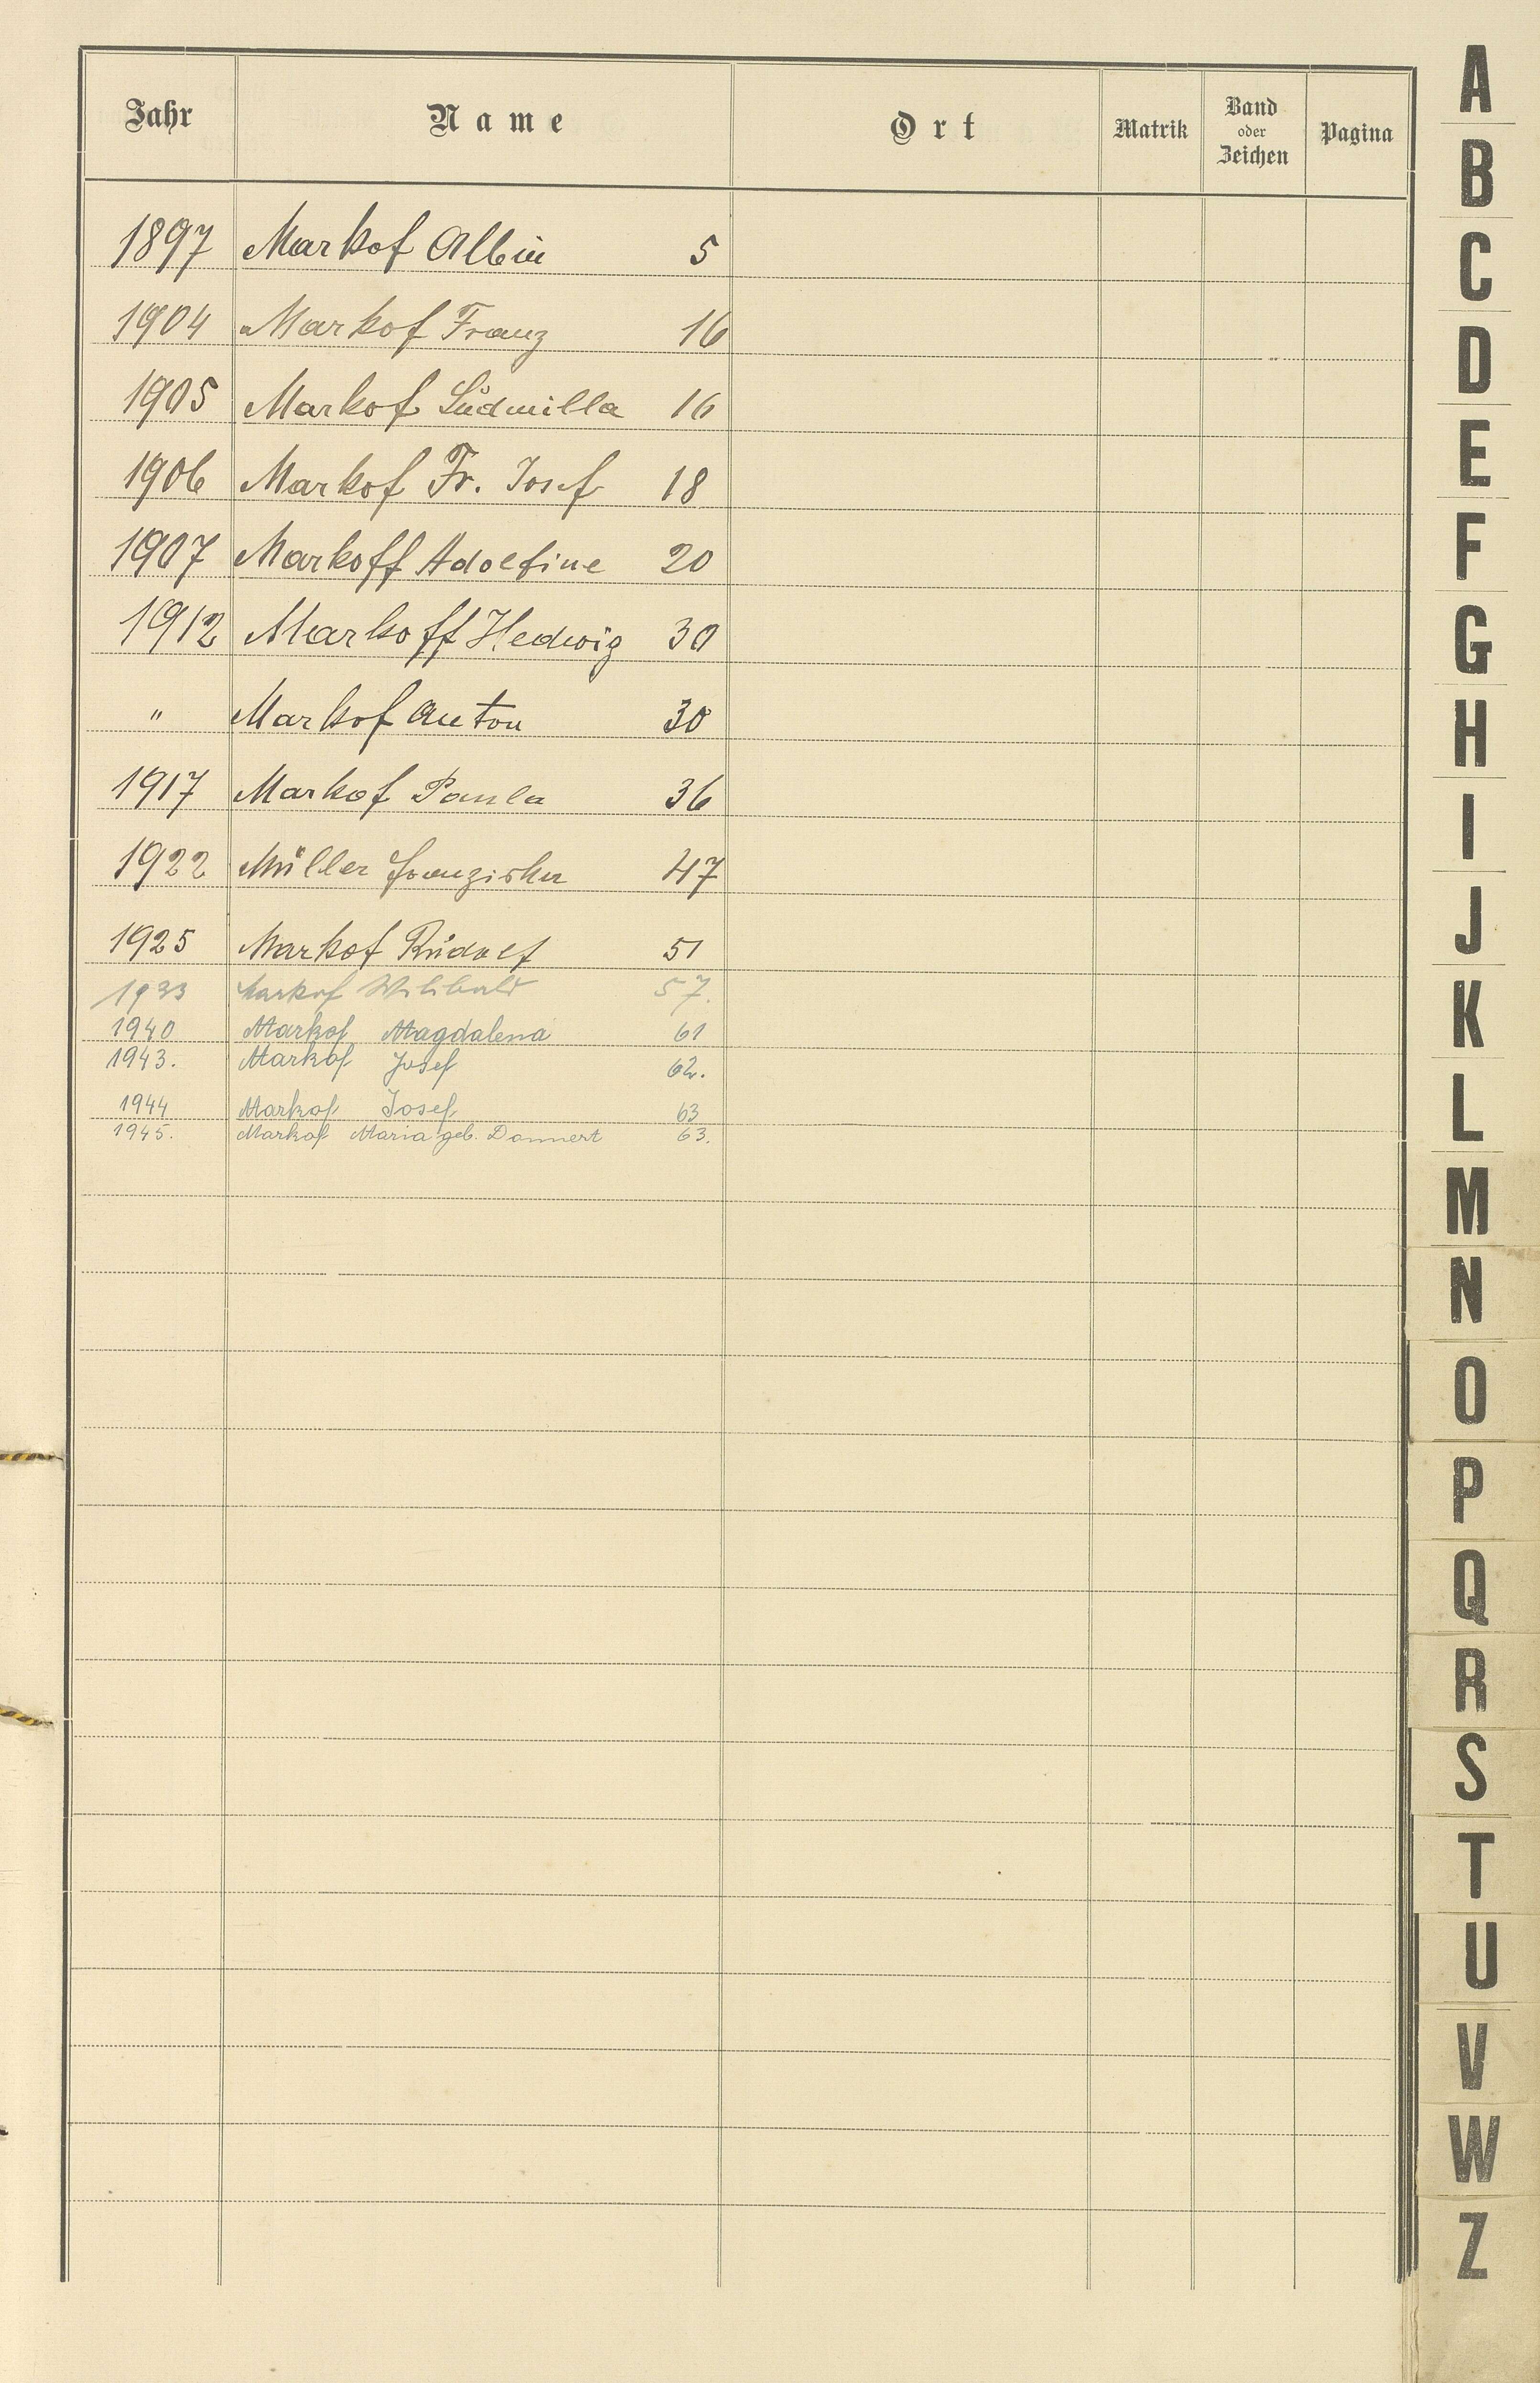 Jahr Name Ort Matrik Band oder Zeichen Pagina
1897 Markof Albin 5
1904 Markof Franz 16
1905 Markof Ludmilla 16
1906 Markof Fr. Josef 18
1907 Markoff Adolfine 20
1912 Markoff Hedwig 30
" Markof Anton 30
1917 Markof Paula 36
1922 Müller Franziska 47
1925 Markof Rudolf 51
1933 Markof Wilibald 57.
1940 Markof Magdalena 61
1943. Markof Josef 62.
1944 Markof Josef 63
1945. Markof Maria geb. Donnert 63.
A
B
C
D
E
F
G
H
I
J
K
L
M
N
O
P
Q
R
S
T
U
V
W
Z